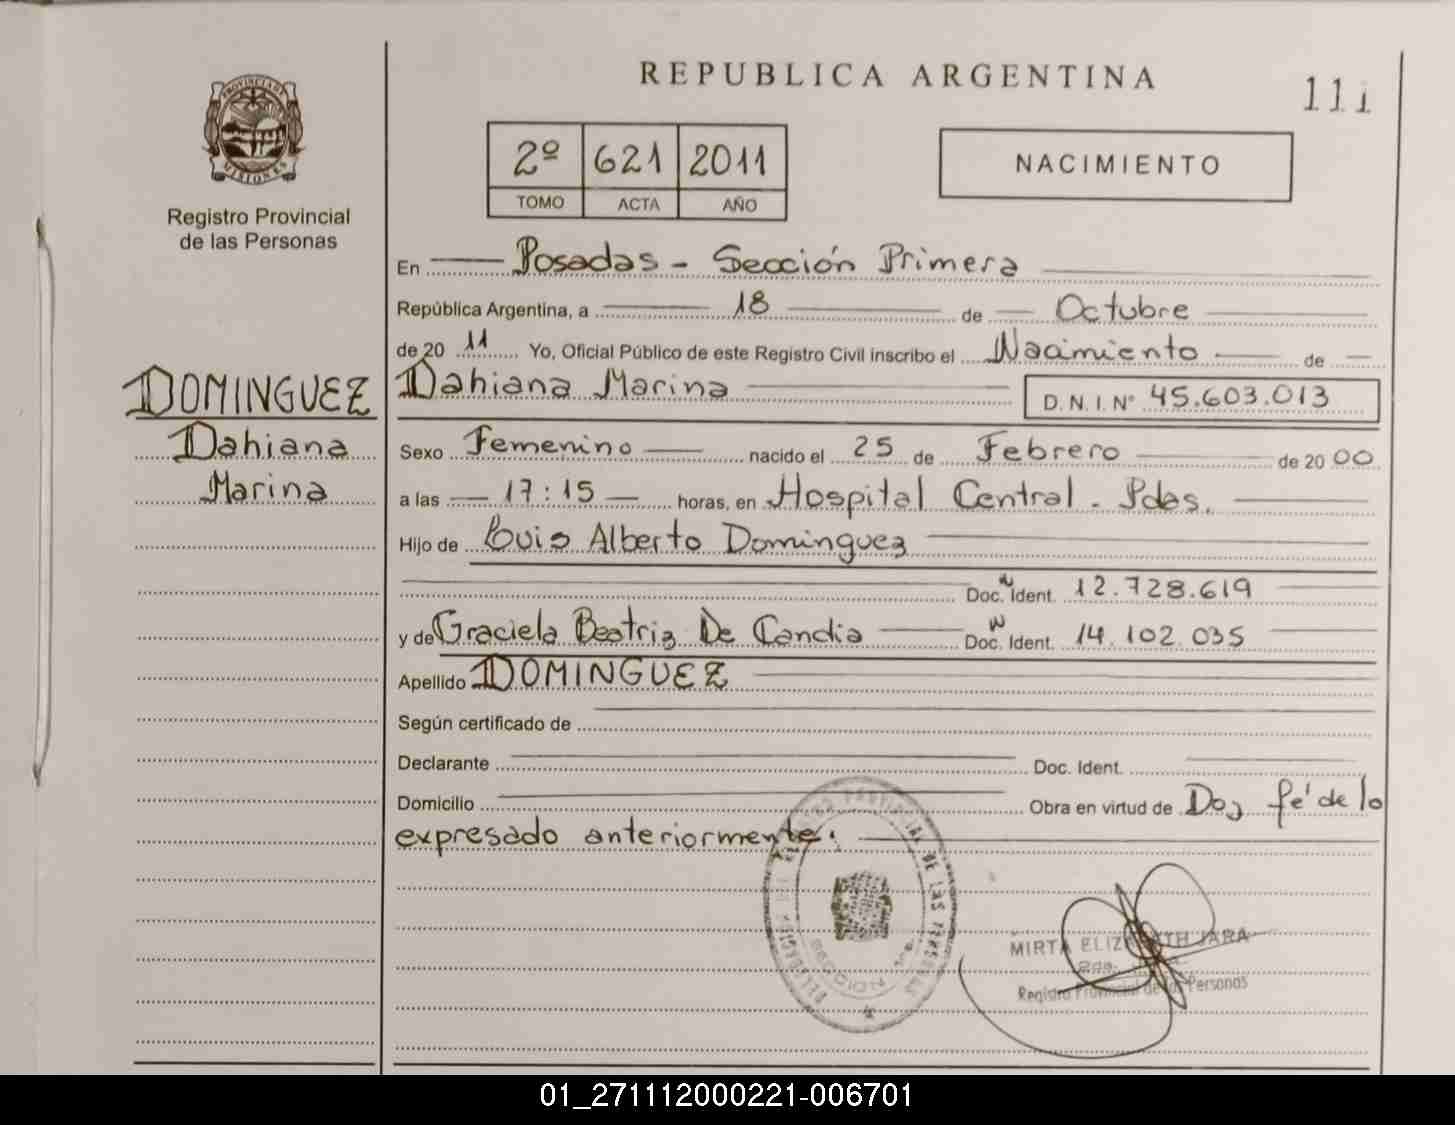 REPUBLICA ARGENTINA
111
PROVINCIA DE MISIONES
Registro Provincial
de las Personas
2º 621 2011
TOMO ACTA AÑO
NACIMIENTO
En Posadas - Sección Primera
República Argentina, a 18 de Octubre
de 20 11 Yo, Oficial Público de este Registro Civil inscribo el Nacimiento de
DOMINGUEZ
Dahiana
Marina
Dahiana Marina D.N.I.Nº 45.603.013
Sexo Femenino nacido el 25 de Febrero de 20 00
a las 17:15 horas, en Hospital Central - Pdas.
Hijo de Luis Alberto Dominguez
Doc. Ident. 12.728.619
y de Graciela Beatriz De Candia Doc. Ident. 14.102.035
Apellido DOMINGUEZ
Según certificado de
Declarante Doc. Ident.
Domicilio Obra en virtud de Doy fé de lo
expresado anteriormente.
REGISTRO PROVINCIAL DE LAS PERSONAS
MIRTA ELIZABETH JARA
Registro Provincial de las Personas
01_271112000221-006701